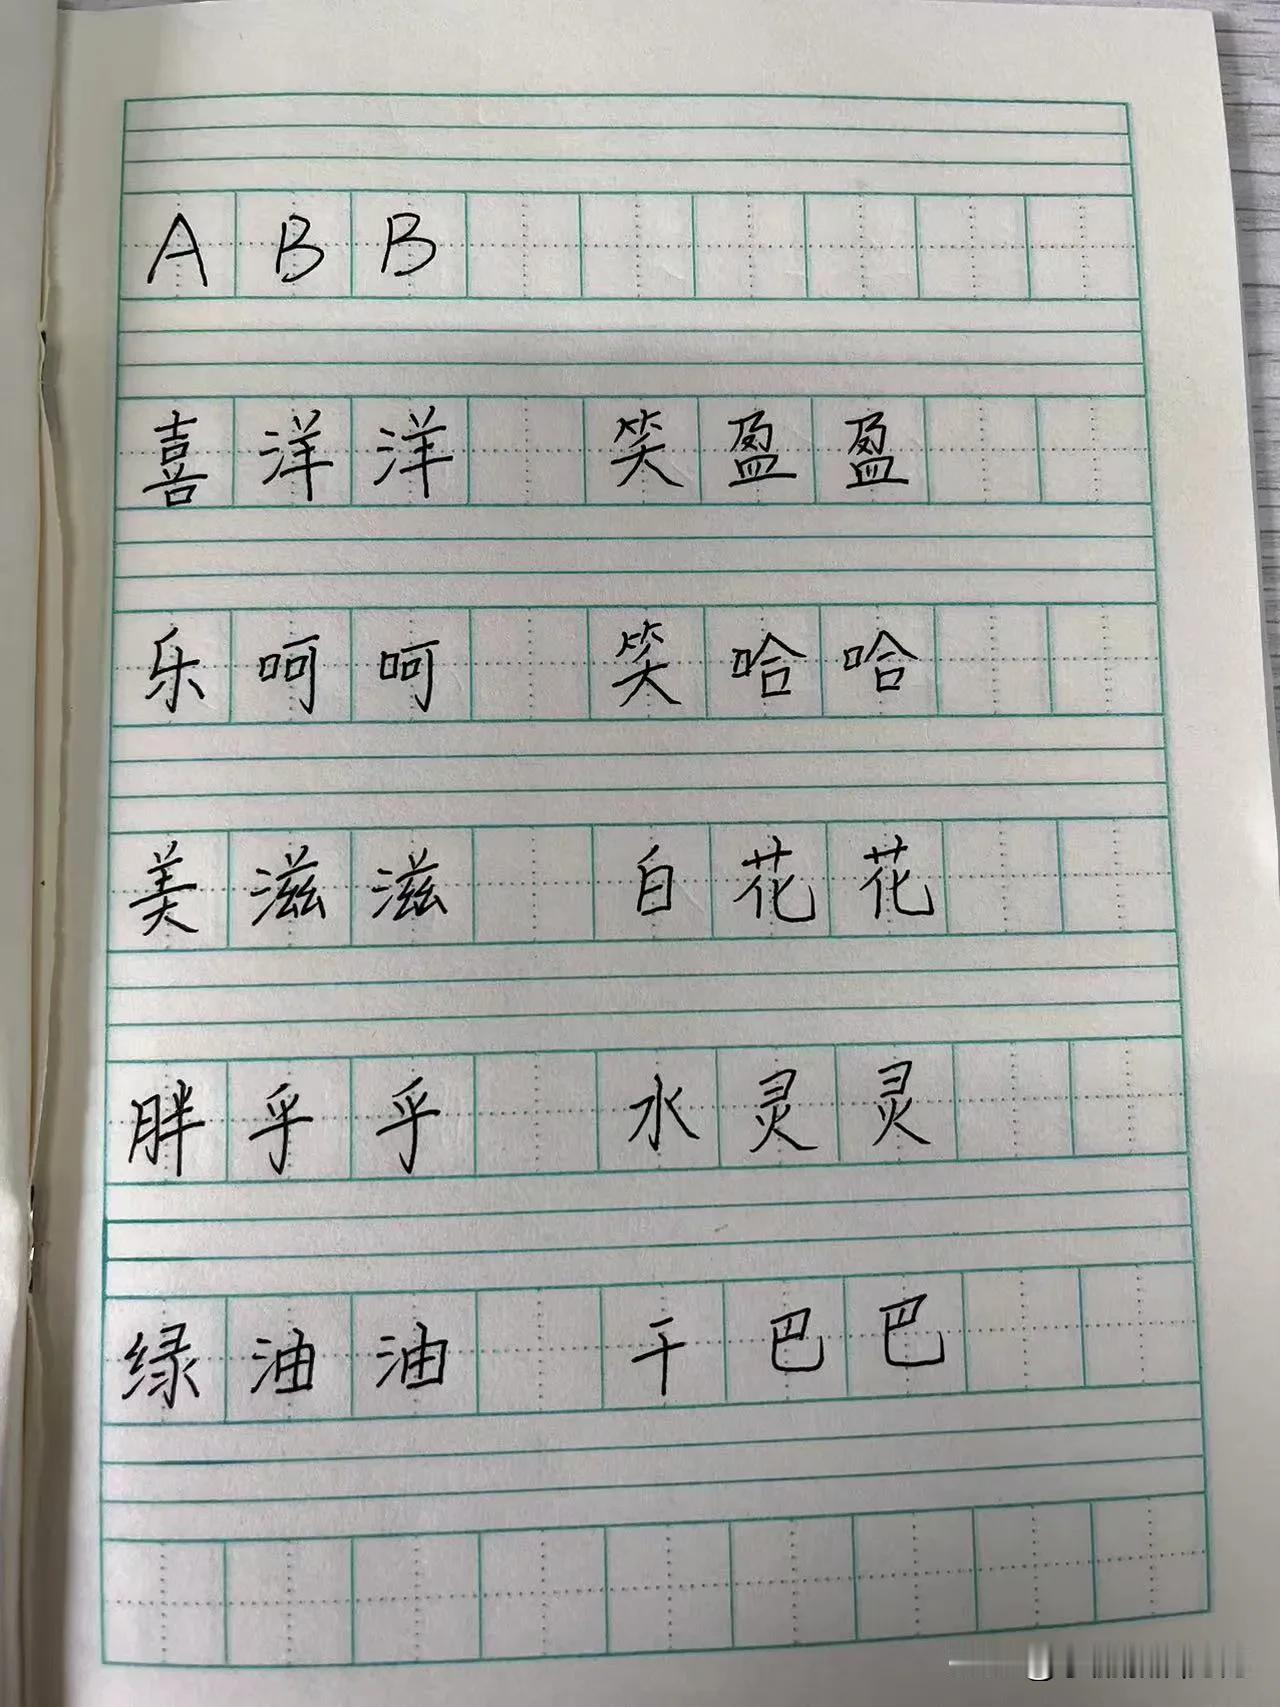 ABB
喜洋洋 笑盈盈
乐呵呵 笑哈哈
美滋滋 白花花
胖乎乎 水灵灵
绿油油 干巴巴